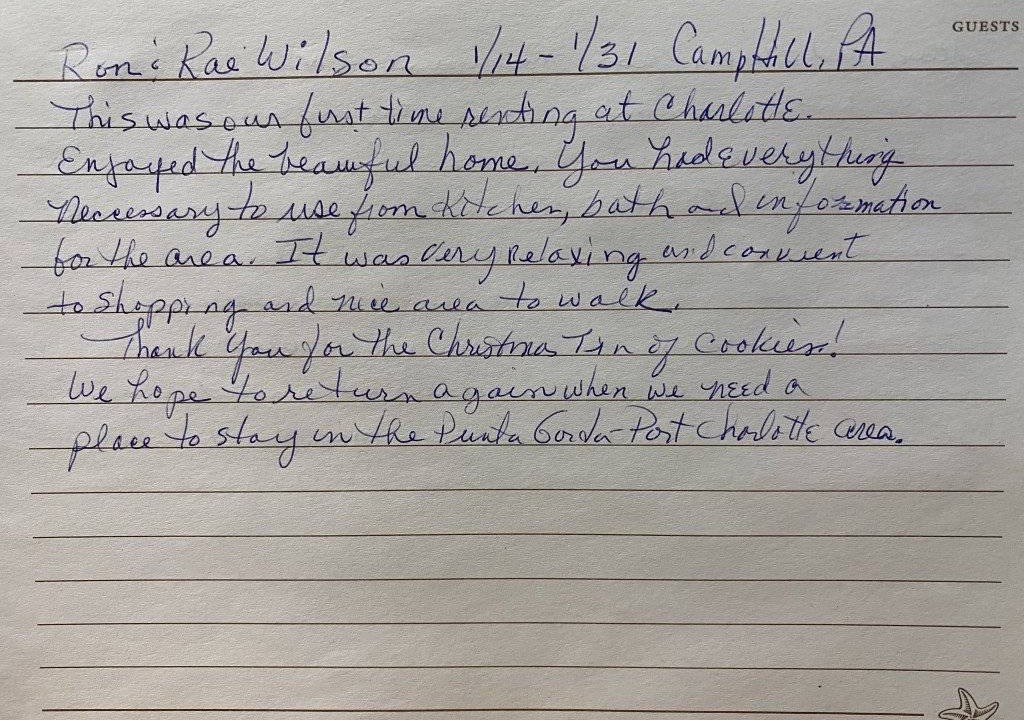 GUESTS
Ron & Rae Wilson 1/14 - 1/31 Camp Hill, PA
This was our first time renting at Charlotte.
Enjoyed the beauiful home. You had everything
Neccessary to use from kitchen, bath and information
for the area. It was very relaxing and convient
to shopping and nice area to walk.
Thank you for the Christmas Tin of Cookies!
We hope to return again when we need a
place to stay in the Punta Gorda-Port Charlotte area.